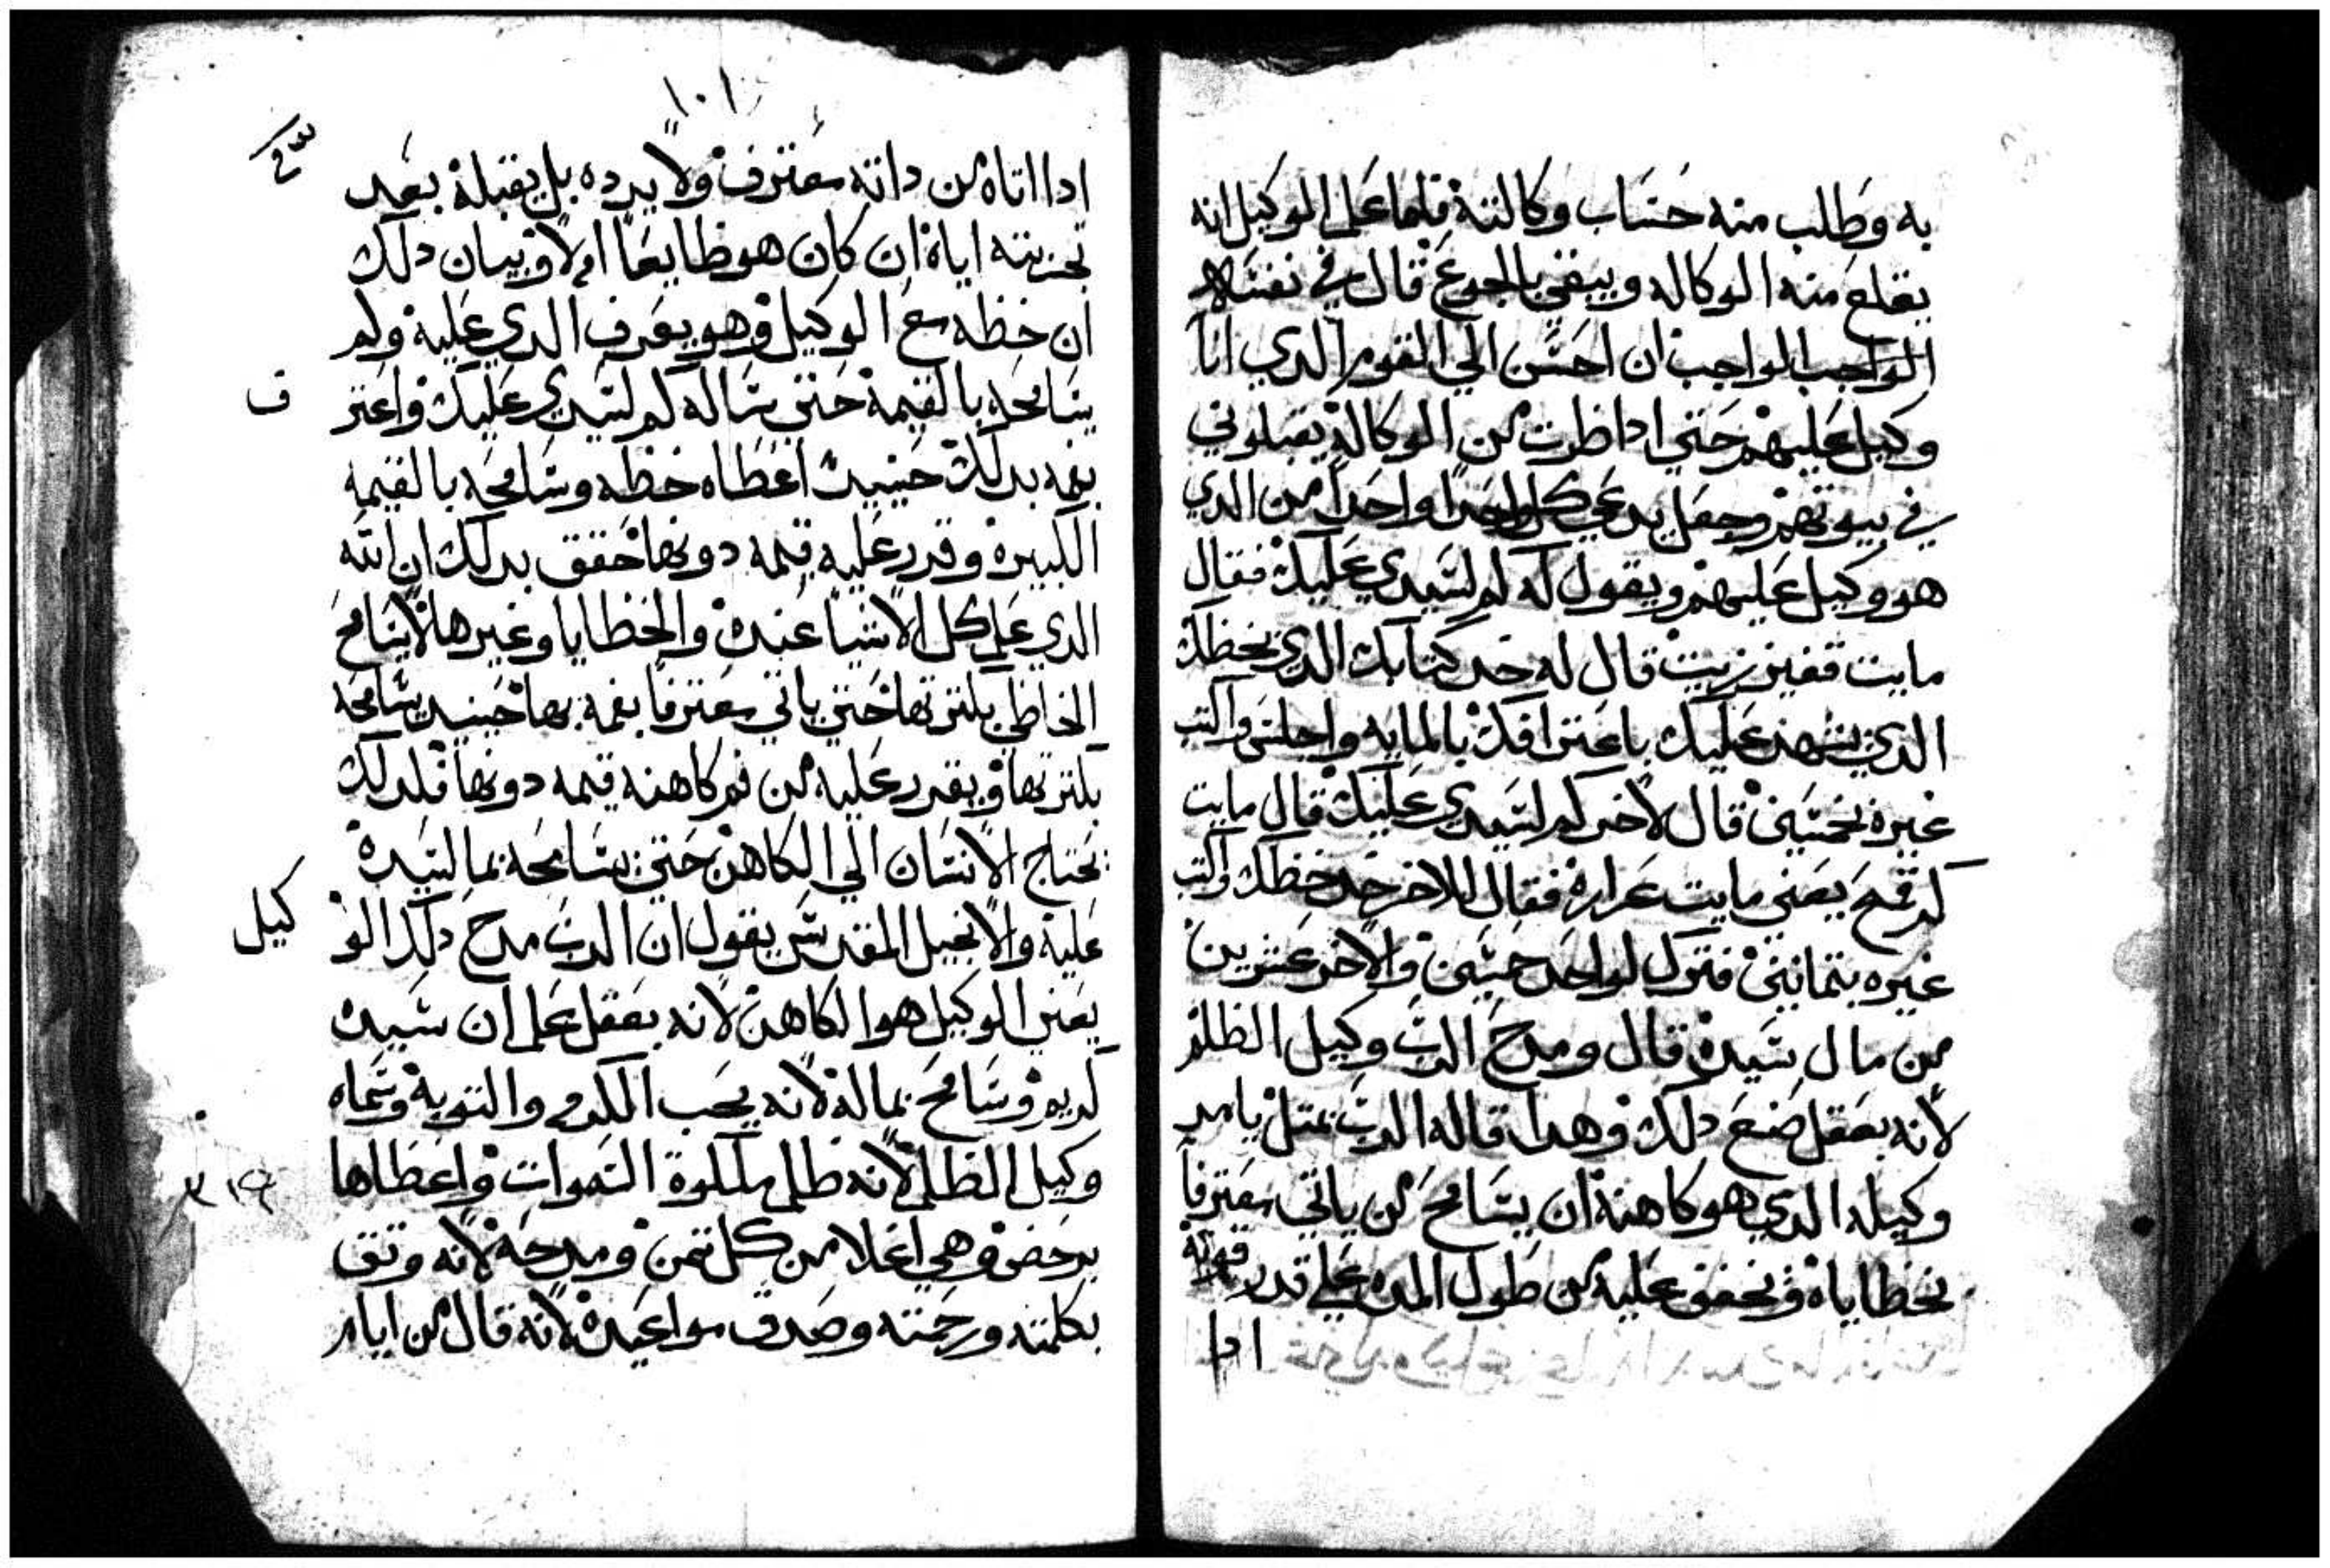 به وطلب منه حساب وكالته فلما علم الوكيل انه
يقلع منه الوكاله ويبقي بالجوع قال في نفسه
الواجب ان احسن الي القوم الدي انا
وكيل عليهم حتي ادا طردت من الوكالة يقبلوني
في بيوتهم وجعل يدعي كل واحدا واحدا من الدي
هو وكيل عليهم ويقول له كم لسيدي عليك فقال
مايت قفيز زيت قال له خد كتابك الدي بخطك
الدي يشهد عليك باعترافك بالمايه واجلس واكتب
غيره بخمسين قال لاخر كم لسيدي عليك قال مايت
كر قمح يعني مايت غراره فقال للاخر خد خطك واكتب
غيره بتمانين فترك لواحد خمسين والاخر عشرين
من مال سيده قال ومدح الرب وكيل الظلم
لانه بعقل صنع دلك وهدا قاله الرب بمتل يامر
وكيله الدي هو كاهنه ان يسامح من ياتي معترفا
بخطاياه ويخفف عليه من طول المده علي قدر قوته
ادا
١٠١
ادا اتاه من داته معترف ولا يرده بل يقبله بعد
تجربته اياه ان كان هو طايعا ام لا وبيان دلك
ان خطه مع الوكيل وهو يعرف الدي عليه ولم
يسامحه بالقيمة حتي ساله كم لسيدي عليك واعتر
ف
بفمه بدلك حينيد اعطاه خطه وسامحه بالقيمه
الكبيره وقرر عليه قيمه دونها حقق بدلك ان الله
الدي علم كل الاشيا عنده والخطايا وغيرها لا يسامح
الخاطي بكترتها حتي ياتي معترفا بفمه بها حينيد يسامحه
بكترتها ويقرر عليه من فم كاهنه قيمه دونها فلدلك
يحتاج الانسان الي الكاهن حتي يسامحه بما لسيده
عليه والانجيل المقدس يقول ان الرب مدح دلك الو
كيل
يعني الوكيل هو الكاهن لانه بعقل علم ان سيده
كريم وسامح بماله لانه يحب الكرم والتوبه وسماه
وكيل الظلم لانه ظلم ملكوة السموات واعطاها
برخص وهي اغلا من كل تمن ومدحه لانه وتق
بكلمته ورحمته وصدق مواعيده لانه قال من ايام